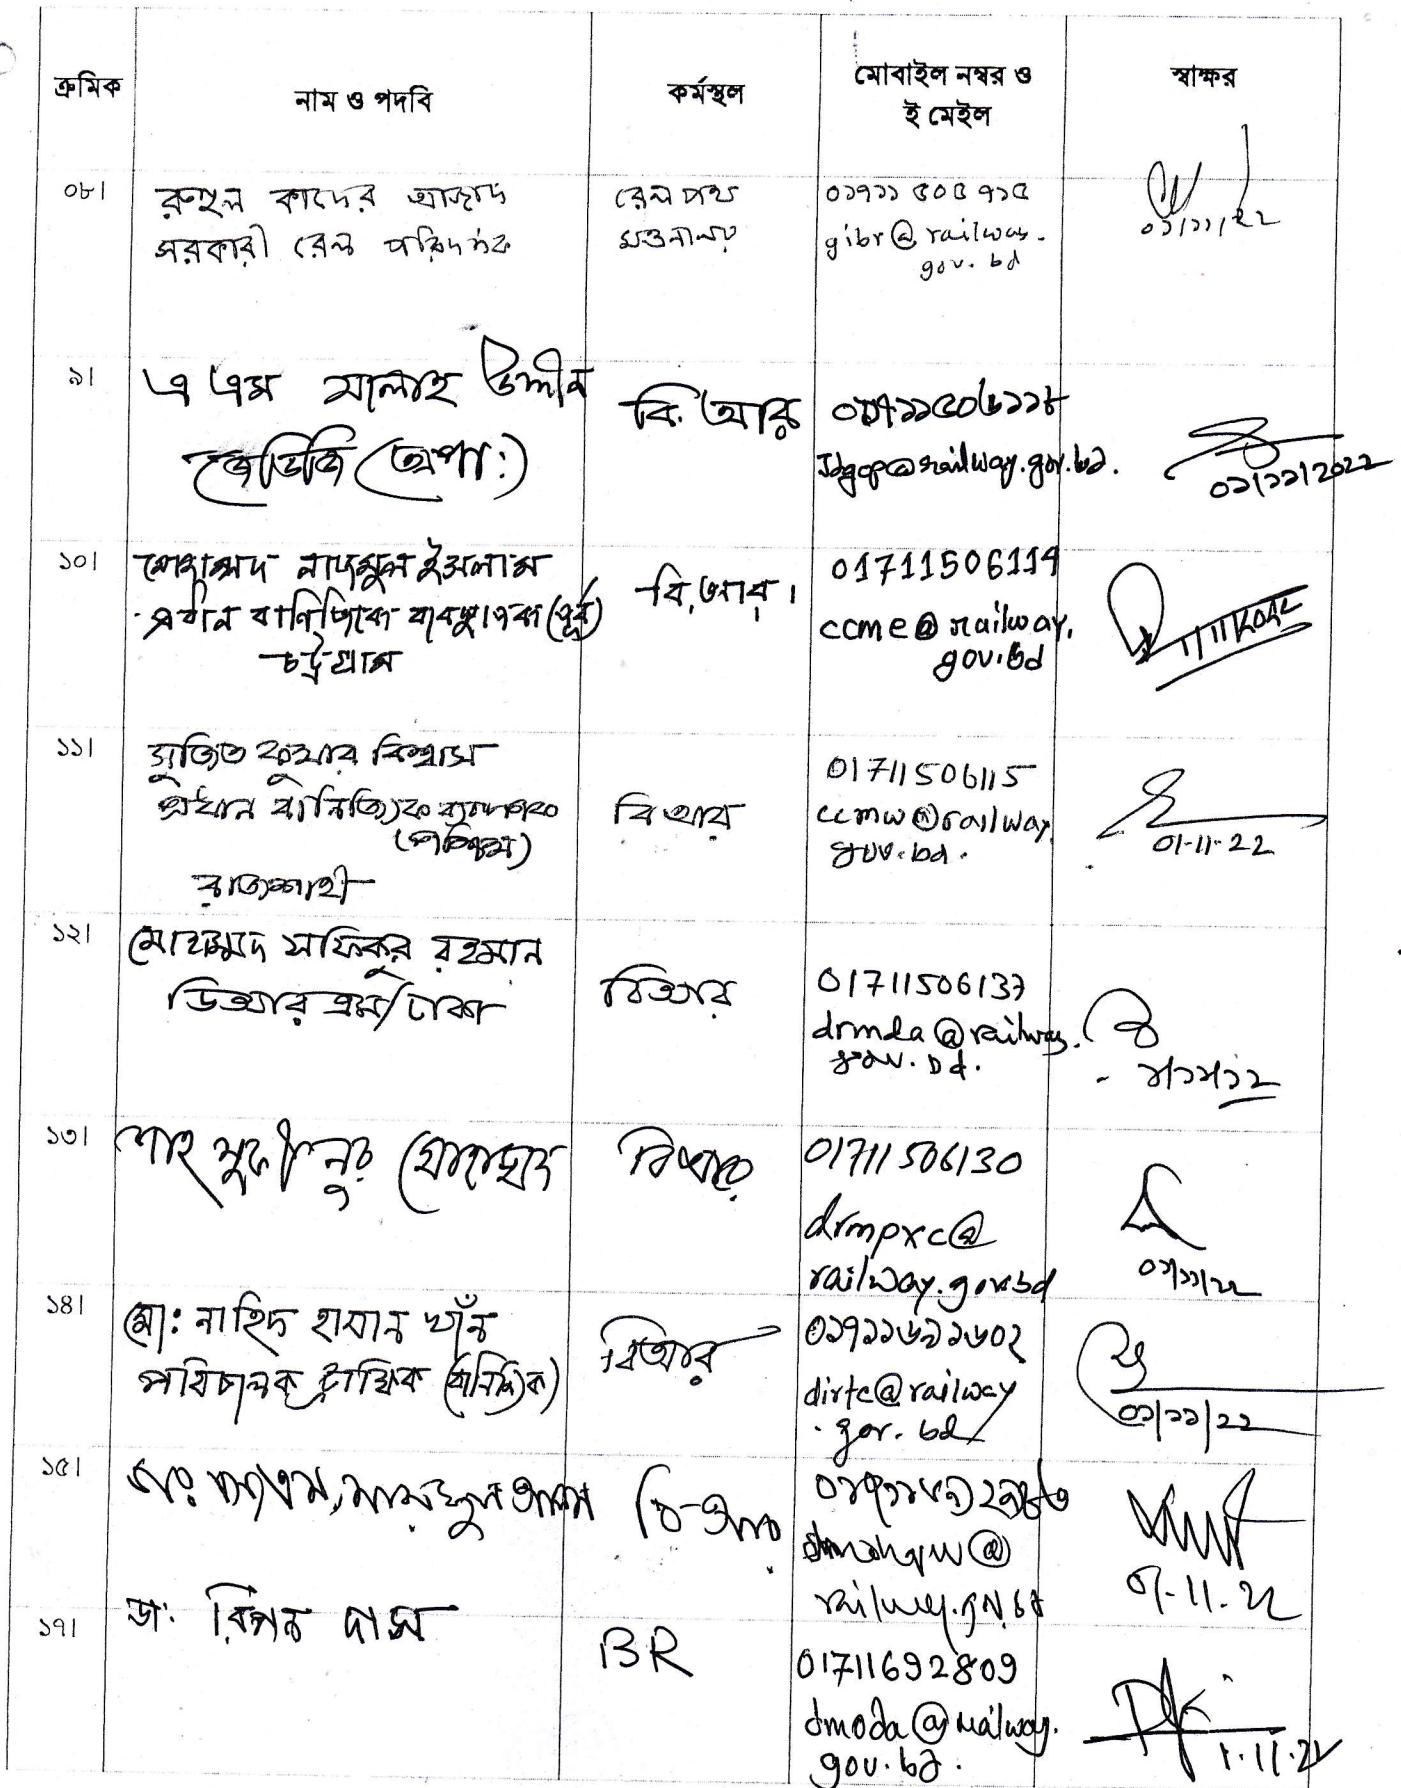 ক্রমিক
নাম ও পদবি
কর্মস্থল
মোবাইল নম্বর ও
ই মেইল
স্বাক্ষর
০৮।
রুহুল কাদের আজাদ
সরকারী রেল পরিদর্শক
রেলপথ
মন্ত্রনালয়
০১৭১১ ৫০৫ ৭১৫
gibr@railway.
gov.bd
০১/১১/২২
৯।
এ এম সালাহ উদ্দীন
জেডিজি (অপা:)
বি. আর
০১৭১১৫০৬১১৮
Jdgop@railway.gov.bd.
০১/১১/2022
১০।
মোহাম্মদ নাজমুল ইসলাম
প্রধান বাণিজ্যিক ব্যবস্থাপক (পূর্ব)
চট্টগ্রাম
বি.আর।
01711506114
ccme@railway.
gov.bd
১১।
সুজিত কুমার বিশ্বাস
প্রধান বানিজ্যিক ব্যবস্থাপক
(পশ্চিম)
রাজশাহী
বিআর
01711506115
ccmw@railway.
gov.bd.
01-11-22
১২।
মোহাম্মদ সফিকুর রহমান
ডিআরএম/ঢাকা
বিআর
01711506137
drmda@railway.
gov.bd.
১৩।
শাহ সুফী নুর মোহাম্মদ
বিআর
01711506130
drmpxc@
railway.gov.bd
০১/১১/২২
১৪।
মো: নাহিদ হাসান খাঁন
পরিচালক ট্রাফিক (বানিজ্যিক)
বিআর
০১৭১১৬৯১৬০২
dirtc@railway
.gov.bd
০১/১১/২২
১৫।
বি-আর
railway.gov.bd
01-11-22
১৭।
ডা: রিপন দাস
BR
01711692809
dmoda@railway.
gov.bd.
1.11.22